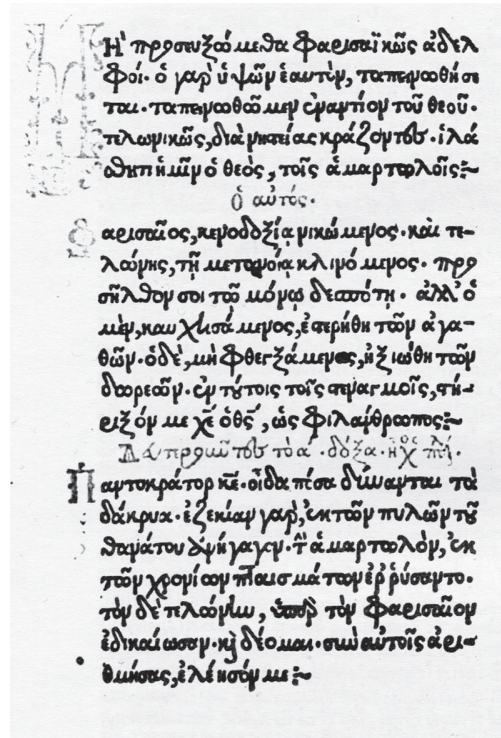 Μὴ προσευξώμεθα φαρισαϊκῶς ἀδελ
φοί· ὁ γὰρ ὑψῶν ἑαυτὸν, ταπεινωθήσε
ται· ταπεινωθῶμεν ἐναντίον τοῦ θεοῦ·
τελωνικῶς, διὰ νηστείας κράζοντες· ἱλά
σθητι ἡμῖν ὁ θεὸς, τοῖς ἁμαρτωλοῖς:~
ὁ αὐτός.
Φαρισαῖος, κενοδοξίᾳ νικώμενος· καὶ τε-
λώνης, τῇ μετανοίᾳ κλινόμενος· προ
σῆλθόν σοι τῷ μόνῳ δεσπότῃ· ἀλλ' ὁ
μὲν, καυχησάμενος, ἐστερήθη τῶν ἀγα-
θῶν· ὁ δὲ, μὴ φθεγξάμενος, ἠξιώθη τῶν
δωρεῶν· ἐν τούτοις τοῖς στεναγμοῖς, στή-
ριξόν με χὲ ὁ θς, ὡς φιλάνθρωπος:~
δόξα· ἦχος
Παντοκράτορ κε· οἶδα πόσα δύνανται τὰ
δάκρυα· ἐζεκίαν γὰρ, ἐκ τῶν πυλῶν τοῦ
θανάτου ἀνήγαγεν· τὴν ἁμαρτωλὸν, ἐκ
τῶν χρονίων πταισμάτων ἐρρύσαντο·
τὸν δὲ τελώνην, ὑπὲρ τὸν φαρισαῖον
ἐδικαίωσαν· κὶ δέομαι· σὺν αὐτοῖς ἀρι-
θμήσας, ἐλέησόν με:~